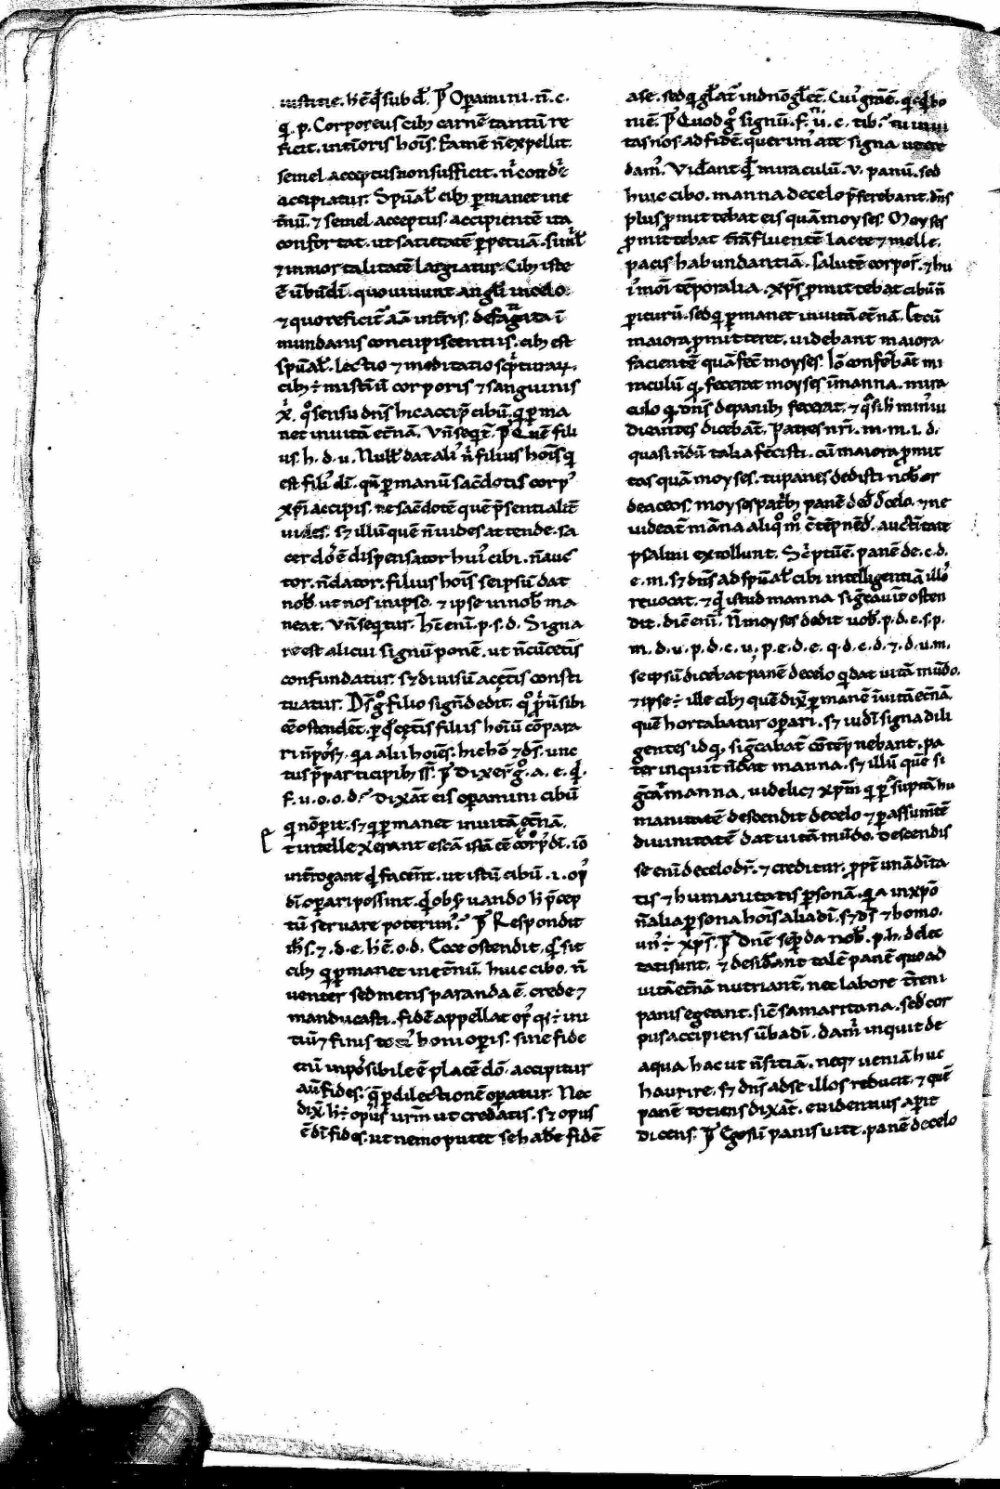 iustitie. h̄ ē qd̄ subd̄. P̄ Operamini. n̄. c.
q̄. p. Corporeus cib; carnē tantū re
ficit. inťioris hoīs famē n̄ expellit.
semel acceptus non sufficit. n̄ cotidíe
accipiatur. Spūal̄ cib; ꝑmanet in e
t̄nū. ⁊ semel acceptus. accipientē ita
confortat. ut satietatē ꝑpetuā. simul̄
⁊ inmortalitatē largiatur. Cib; iste
ē ūbū dī. quo uiuunt angl̄i in celo.
⁊ quo reficit̄ aīa inťris. defatigata ī
mundanis concupiscentiis. cib; est
spūal̄. lectio ⁊ meditatio scͥpturaꝝ.
cib; ÷ mistīū corporis ⁊ sanguinis
x̄. q° sensu dn̄s hic accipͥ cibū. q̄ ꝑma
net in uitā et̄nā. Vn̄ seqͥt̄. P̄ Quē fili
us. h. d. u. Null̄ dat aliͥ n̄ filius hoīs qͥ
est filiͥ dī. qn̄ ꝑ manū sac̄dotis corpͥ
xp̄i accipis. ne sac̄dotē quē p̄sentialit̄
uides. s; illū quē n̄ uides attende. sa
cerdoͥ ē dispensator huiͥ cibi. n̄ auc
tor. n̄ dator. filius hoīs seipsū dat
nob̄. ut nos in ipso. ⁊ ipse in nob̄ ma
neat. Vn̄ seqͥtur. h̄c enī. p. s. d. Signa
re est alicui signū ponē. ut n̄ cū cet̄is
confundatur. s; diuisū a cet̄is consti
tuatur. Ds̄ gͦ filio signū dedit. qͦ p̄ūsibi
eē ostendēt. p̄ qd̄ cet̄is filiis hoīū cōpara
ri n̄ pos;. q̄a alii hoīes. hic hō ⁊ ds̄. unc
tus p̄ participib; s̄s. P̄ Dixer̄ gͦ. a. e. qͥ.
f. u. o. o. d. Dixāt eis oꝑamini cibū
q̄ nō ꝑit. s; q̄ ꝑmanet in uitā et̄nā.
⁊ intellexerant escā istā eē corpͥ dī. iō
inťrogant qͥ facent̄. ut istū cibū. i. opͥ
dī oꝑari possint. qͥ obseruando h̄ p̄cep
tū seruare poterunͥ. P̄ Respondit
ih̄s. ⁊. d. e. h̄ ē. o. d. Ecce ostendit. qͥ sit
cib; q̄ ꝑmanet in et̄nū. huic cibo. n̄
uenter sed mens paranda ē. crede ⁊
manducasti. fidē appellat opͥ qͥ ÷ ini
tiū ⁊ finis toͥ boni oꝑis. sine fide
enī inposibile ē placē dō. accipitur
aū fides. q̄ ꝑ dilectionē oꝑatur. Nec
dix̄ h̄ ÷ opus urm̄ ut credatis. s; opus
ē dī fides. ut nemo putet se habe fidē
a se. sed qͥ gl̄at̄ in dn̄o gl̄et̄. Cuiͥ gr̄a ē. qͥcqͥd bo
ni ē. P̄ Quod gͦ signū. f. n̄. e. tibͥ. tu inui
tas nos ad fidē. querimͥ a te signa ut cre
damͥ. Vidant qd̄ miraculū. v. panū. sed
huic cibo. manna de celo p̄ferebant. dn̄s
plus ꝓmittebat eis quā moyses. Moyses
ꝓmittebat tr̄ā fluentē lacte ⁊ melle.
pacis habundantiā. salutē corpoř. ⁊ hu
iͥmoī tēporalia. xp̄s ꝓmittebat cibū n̄
ꝑiturū. sed q̄ ꝑmanet in uitā et̄nā. Et cū
maiora ꝓmitteret. uidebant maiora
facientē quā fec̄ moyses. Iō conferēbāt mi
raculū qͥ. fecerat moyses in manna. mira
culo qͥ dn̄s de panib; fecerat. ⁊ qͥsi h̄ minͥ iu
dicantes dicebāt. Patres nr̄i. m. m. i. d.
quasi n̄dū talia fecisti. cū maiora ꝓmit
tas quā moyses. tu panes dedisti nob̄ or
deaceos. moyses patrib; panē ded̄ d̄ celo. ⁊ ne
uideat̄ māna aliqͦ mͦ c̄tēpnēd̄. auct̄itate
psalmi extollunt. Scͥptū ē. panē de. c. d.
e. m. s; dn̄s ad spūal̄ cibi intelligentiā illoͥ
reuocat. ⁊ qd̄ istud manna sig̅cauit ostēn
dit. dic̄ enī. N̄ moyses dedit uob̄. p. d. c. s. p.
m. d. u. p. d. c. u. p. e. d. e. q. d. c. d. ⁊. d. u. m.
se ipsū dicebat panē de celo q̄ dat uitā mūdo.
⁊ ipse ÷ ille cib; quē dix̄ ꝑmanē in uitā et̄nā.
quē hortabatur oꝑari. s; iudī signa dili
gentes id qͥ. sig̅cabat̄ contēpnebant. pa
ter inquit n̄ dat manna. s; illū quē si
g̅cat manna. uidelic; xp̄m q̄ ꝑ suptā hu
manitatē descendit de celo ⁊ ꝑ assumtē
diuinitatē dat uitā mūdo. Descendis
se enī de celo dr̄. ⁊ creditur. ꝓpt̄ unā dīta
tis ⁊ humanitatis ꝑsonā. q̄a in xp̄o
n̄ alia ꝑsona hoīs alia dī. s; ds̄ ⁊ homo.
unͥ ÷ xp̄s. P̄ Dn̄e semp̄ da nob̄. p. h. delec
tati sunt. ⁊ desid̄ant talē panē quo ad
uitā et̄nā nutriant̄. nec labore t̄reni
panis egeant. sic̄ samaritana. sed cor
pus accipiens ūba dī. damͥ inquit de
aqua hac ut n̄ sitiā. neq; ueniā huc
haurire. s; dn̄s ad se illos reducit. ⁊ quē
panē totiens dixāt. euidentius aꝑit
dicens. P̄ Ego sū panis uite. panē de celo